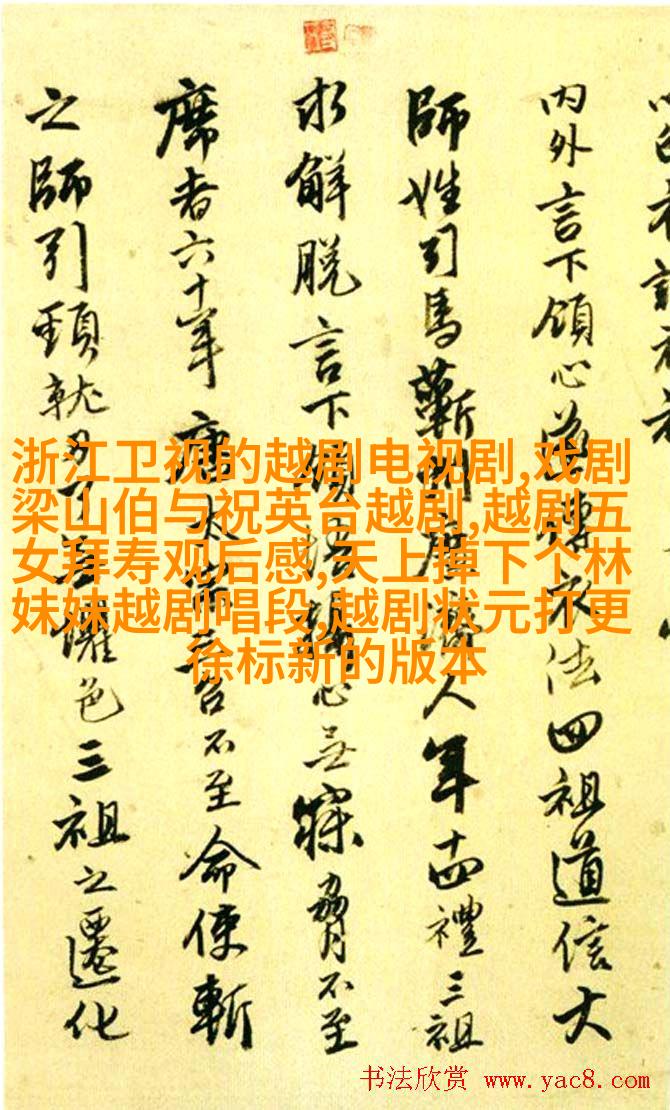 内外言下領心遂轉衣法四祖道信大
師姓引馬蘄州廣濟人年十四禮三祖
求解脫言下頓悟心無寐脅不至
席者六十年唐太宗三召不至命使斬
之師引頸就刃了無懼色三祖之遷化
浙江卫视的越剧电视剧,戏剧
梁山伯与祝英台越剧,越剧五
女拜寿观后感,天上掉下个林
妹妹越剧唱段,越剧状元打更
徐标新的版本
书法欣赏 www.yac8.com